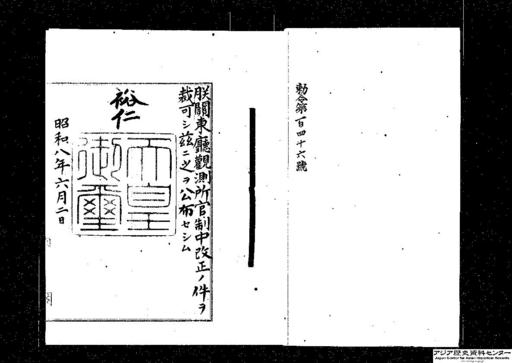 勅令第百四十六號
朕關東廳觀測所官制中改正ノ件ヲ
裁可シ茲ニ之ヲ公布セシム
裕仁
天皇
御璽
昭和八年六月二日
アジア歴史資料センター
Japan Center for Asian Historical Records